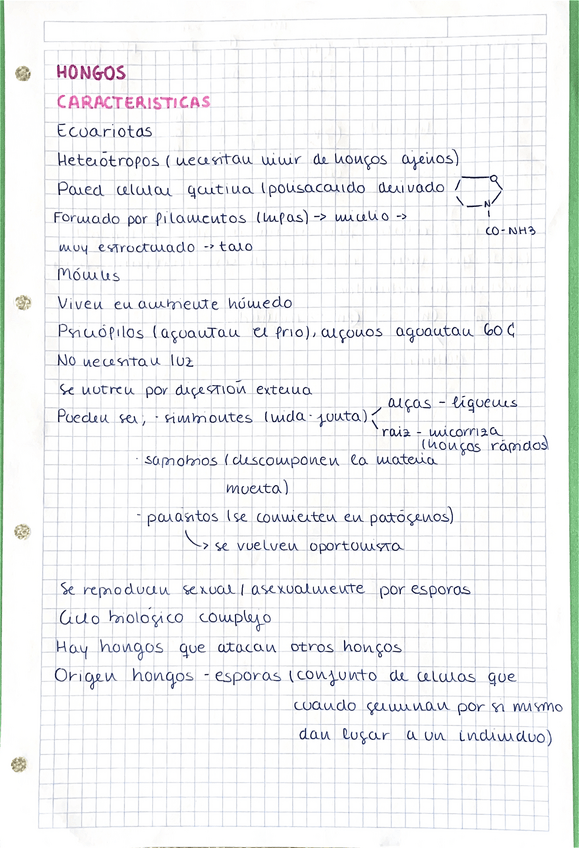 HONGOS
CARACTERISTICAS
Ecuariotas
Heterótropos (necesitan vivir de hongos ajenos)
Pared celular quitina (polisacarido derivado
O
N
CO-NH3
Formado por filamentos (hifas) -> micelio ->
muy estructurado -> talo
Móviles
Viven en ambiente húmedo
Psicrófilos (aguantan el frio), algunos aguantan 60 C
No necesitan luz
Se nutren por digestión externa
Pueden ser; · simbiontes (vida junta) algas - líquenes
raiz - micorriza
(hongos rápidos)
· saprobios (descomponen la materia
muerta)
· parasitos (se convierten en patógenos)
-> se vuelven oportunista
Se reproducen sexual / asexualmente por esporas
Ciclo biológico complejo
Hay hongos que atacan otros hongos
Origen hongos - esporas (conjunto de celulas que
cuando germinan por si mismo
dan lugar a un individuo)